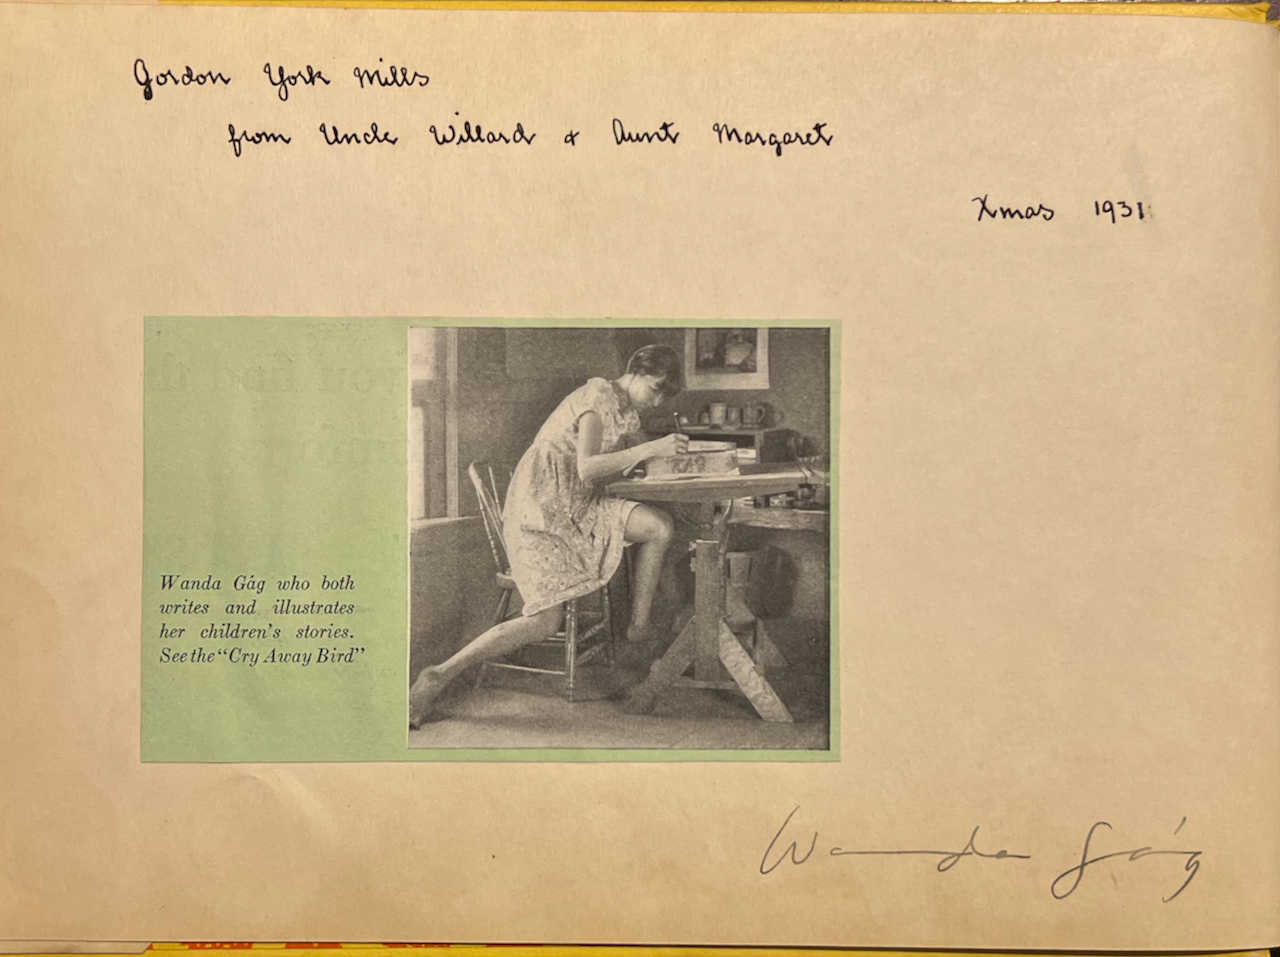 Gordon York Mills
from Uncle Willard & Aunt Margaret
Xmas 1931
Wanda Gág who both
writes and illustrates
her children's stories.
See the "Cry Away Bird"
Wanda Gág